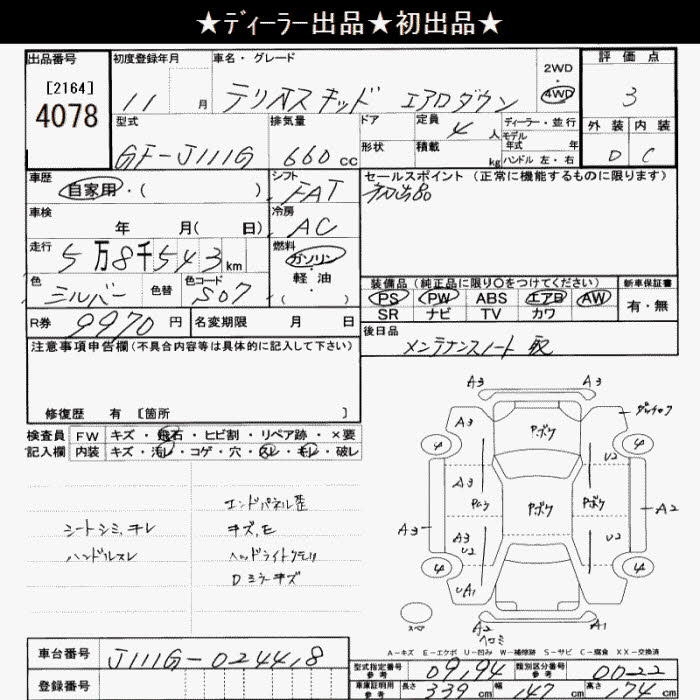 ★ディーラー出品★初出品★
出品番号
[2164]
4078
初度登録年月
11 月
車名・グレード
テリオスキッド エアロダウン
2WD
・
4WD
評価点
3
外装 内装
D C
型式
GF-J111G
排気量
660 cc
ドア
形状
定員
4 人
積載
kg
ディーラー・並行
モデル年式 年
ハンドル 左・右
車歴
自家用・( )
シフト
FAT
セールスポイント (正常に機能するものに限ります)
初出品
車検
年 月( 日)
冷房
AC
走行
5万8千543km
燃料
ガソリン
・
軽油
( )
色
シルバー
色替
色コード
S07
装備品 (純正品に限り○をつけてください)
PS PW ABS エアB AW
SR ナビ TV カワ
新車保証書
有・無
R券
9970 円
名変期限 月 日
後日品
メンテナンスノート 取
注意事項申告欄 (不具合内容等は具体的に記入して下さい)
修復歴 有 [箇所 ]
検査員
記入欄
FW キズ・飛石・ヒビ割・リペア跡・×要
内装 キズ・汚レ・コゲ・穴・スレ・キレ・破レ
シートシミ,キレ
ハンドルスレ
エンドパネル歪
キズ,モ
ヘッドライトクモリ
Dミラーキズ
A3 A3
A3
Pボケ
4 4
U2
A3
Pボケ Pボケ
A3
A2
A3
U2
U2
4 4
UA1
スペア
A2
A1
A-キズ E-エクボ U-凹み W-補修跡 S-サビ C-腐食 XX-交換済
車台番号
J111G-024418
登録番号
型式指定番号
参考
09194
類別区分番号
参考
0022
車庫証明用
参考
長さ 339 cm 幅 147 cm 高さ 174 cm